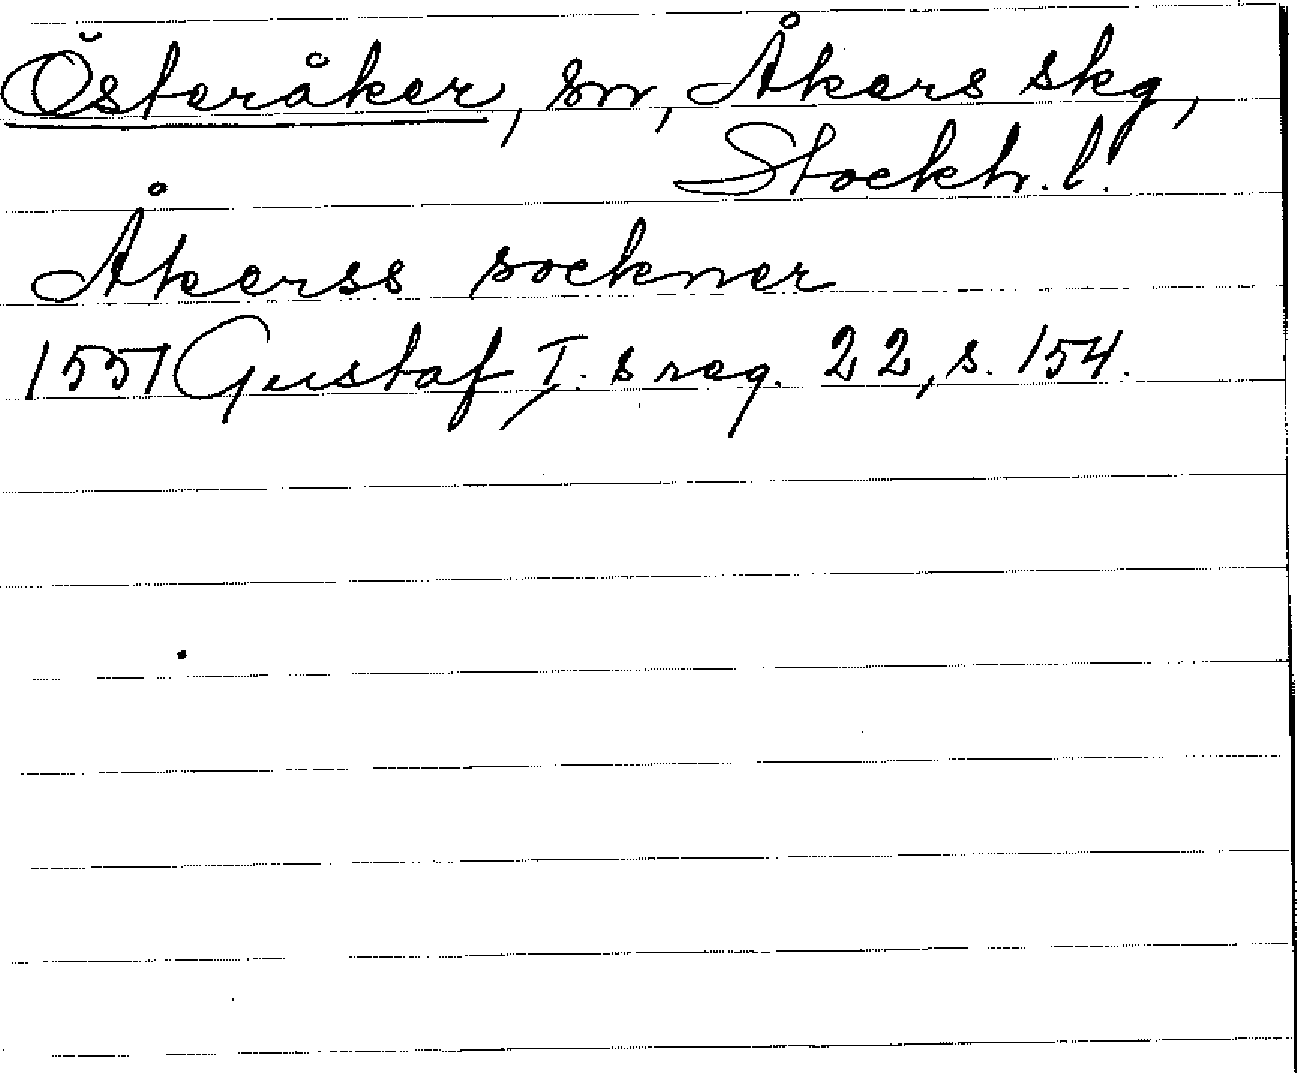 Österåker, sn, Åkers skg,
Stockh. l.
Åkerss sockner
1551 Gustaf I. s reg. 22, s. 154.